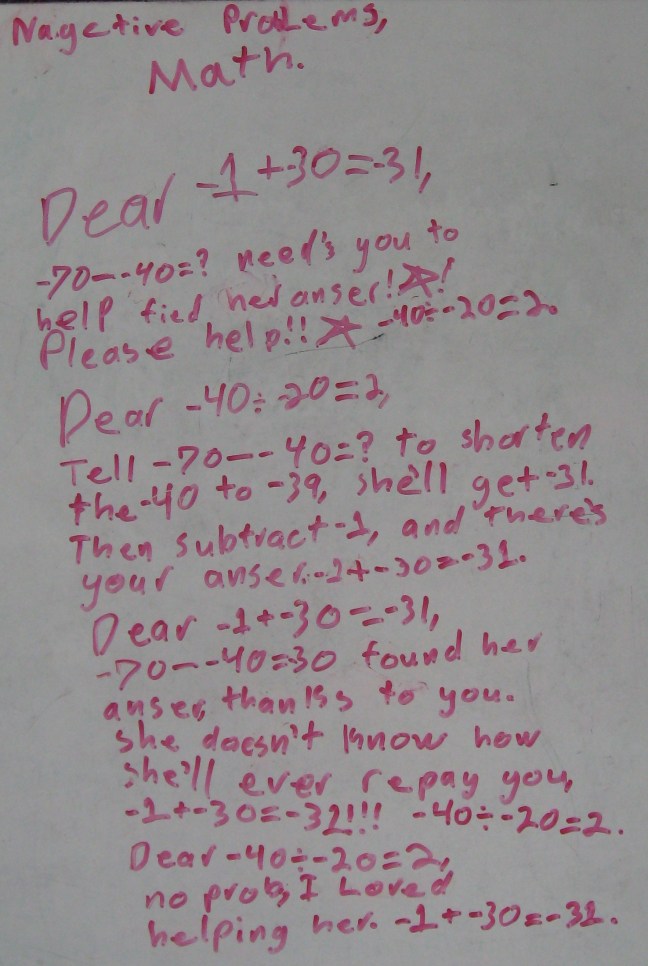 Nagative Problems,
Math.
Dear -1+-30=-31,
-70--40=? need's you to
help fied her anser!☆!
Please help!!☆ -40÷-20=2.
Dear -40÷-20=2,
Tell -70--40=? to shorten
the -40 to -39, she'll get -31.
Then subtract -1, and there's
your anser. -1+-30=-31.
Dear -1+-30=-31,
-70--40=30 found her
anser, thanks to you.
she doesn't know how
she'll ever repay you,
-1+-30=-31!!! -40÷-20=2.
Dear -40÷-20=2,
no prob, I Loved
helping her. -1+-30=-31.